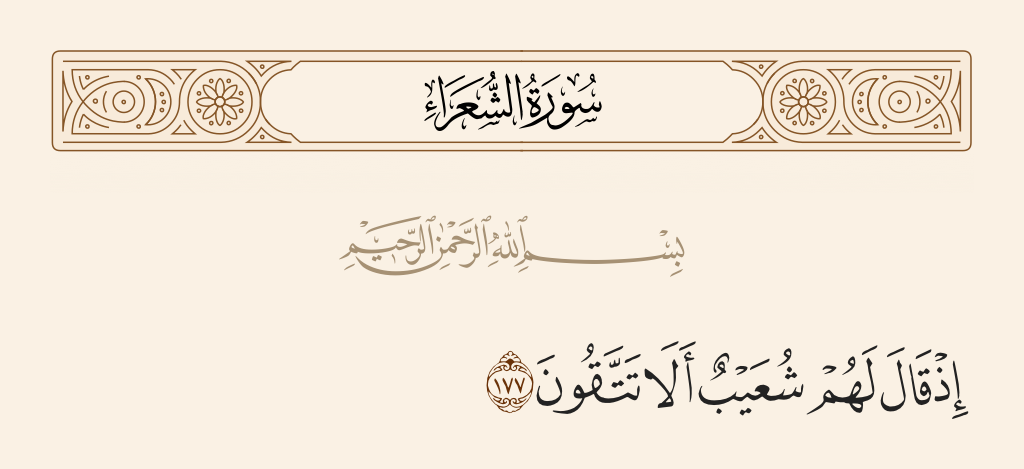 سُورَةُ الشُّعَرَاءِ
بِسْمِ ٱللَّهِ ٱلرَّحْمَٰنِ ٱلرَّحِيمِ
إِذْ قَالَ لَهُمْ شُعَيْبٌ أَلَا تَتَّقُونَ ١٧٧